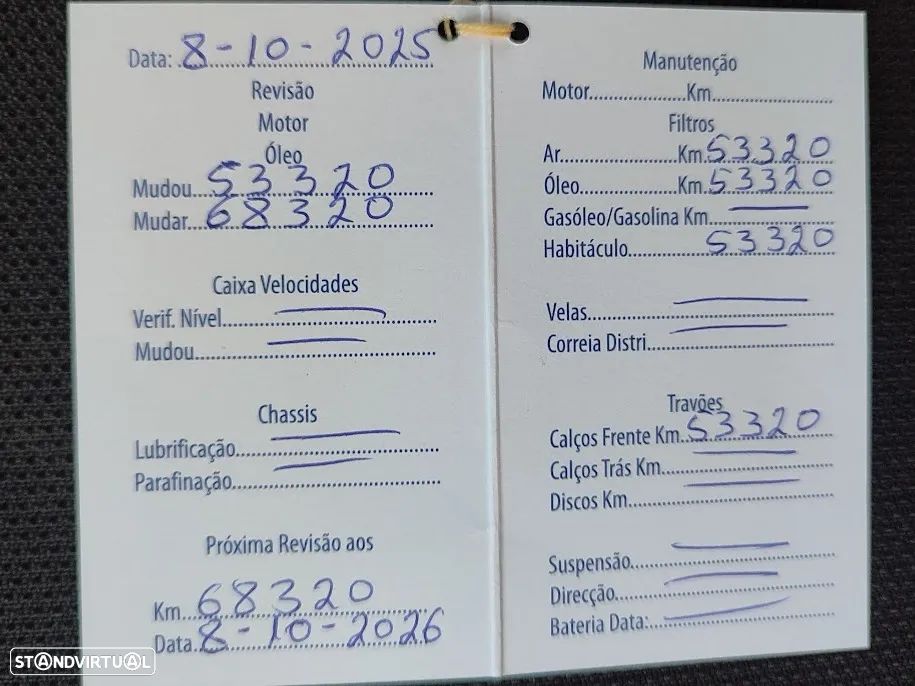 Data: 8-10-2025
Revisão
Motor
Óleo
Mudou...53320
Mudar...68320
Caixa Velocidades
Verif. Nível
Mudou
Chassis
Lubrificação
Parafinação
Próxima Revisão aos
Km...68320
Data...8-10-2026
Manutenção
Motor...Km
Filtros
Ar...Km...53320
Óleo...Km...53320
Gasóleo/Gasolina Km
Habitáculo...53320
Velas
Correia Distri.
Travões
Calços Frente Km...53320
Calços Trás Km
Discos Km
Suspensão
Direcção
Bateria Data:
STANDVIRTUAL